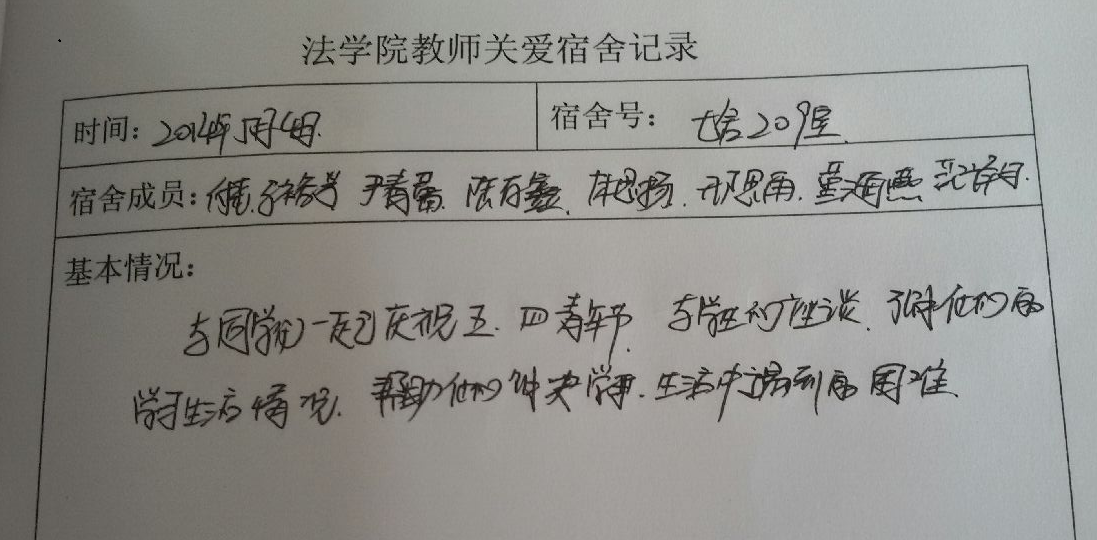 法学院教师关爱宿舍记录
时间：2014年5月4日. 宿舍号：七舍209室
宿舍成员： 尹青 陈 思扬. 思雨. 董海燕
基本情况：
与同学们一起庆祝五.四青年节. 与学生们座谈. 了解他们的
学习生活情况. 帮助他们解决学习.生活中遇到的困难